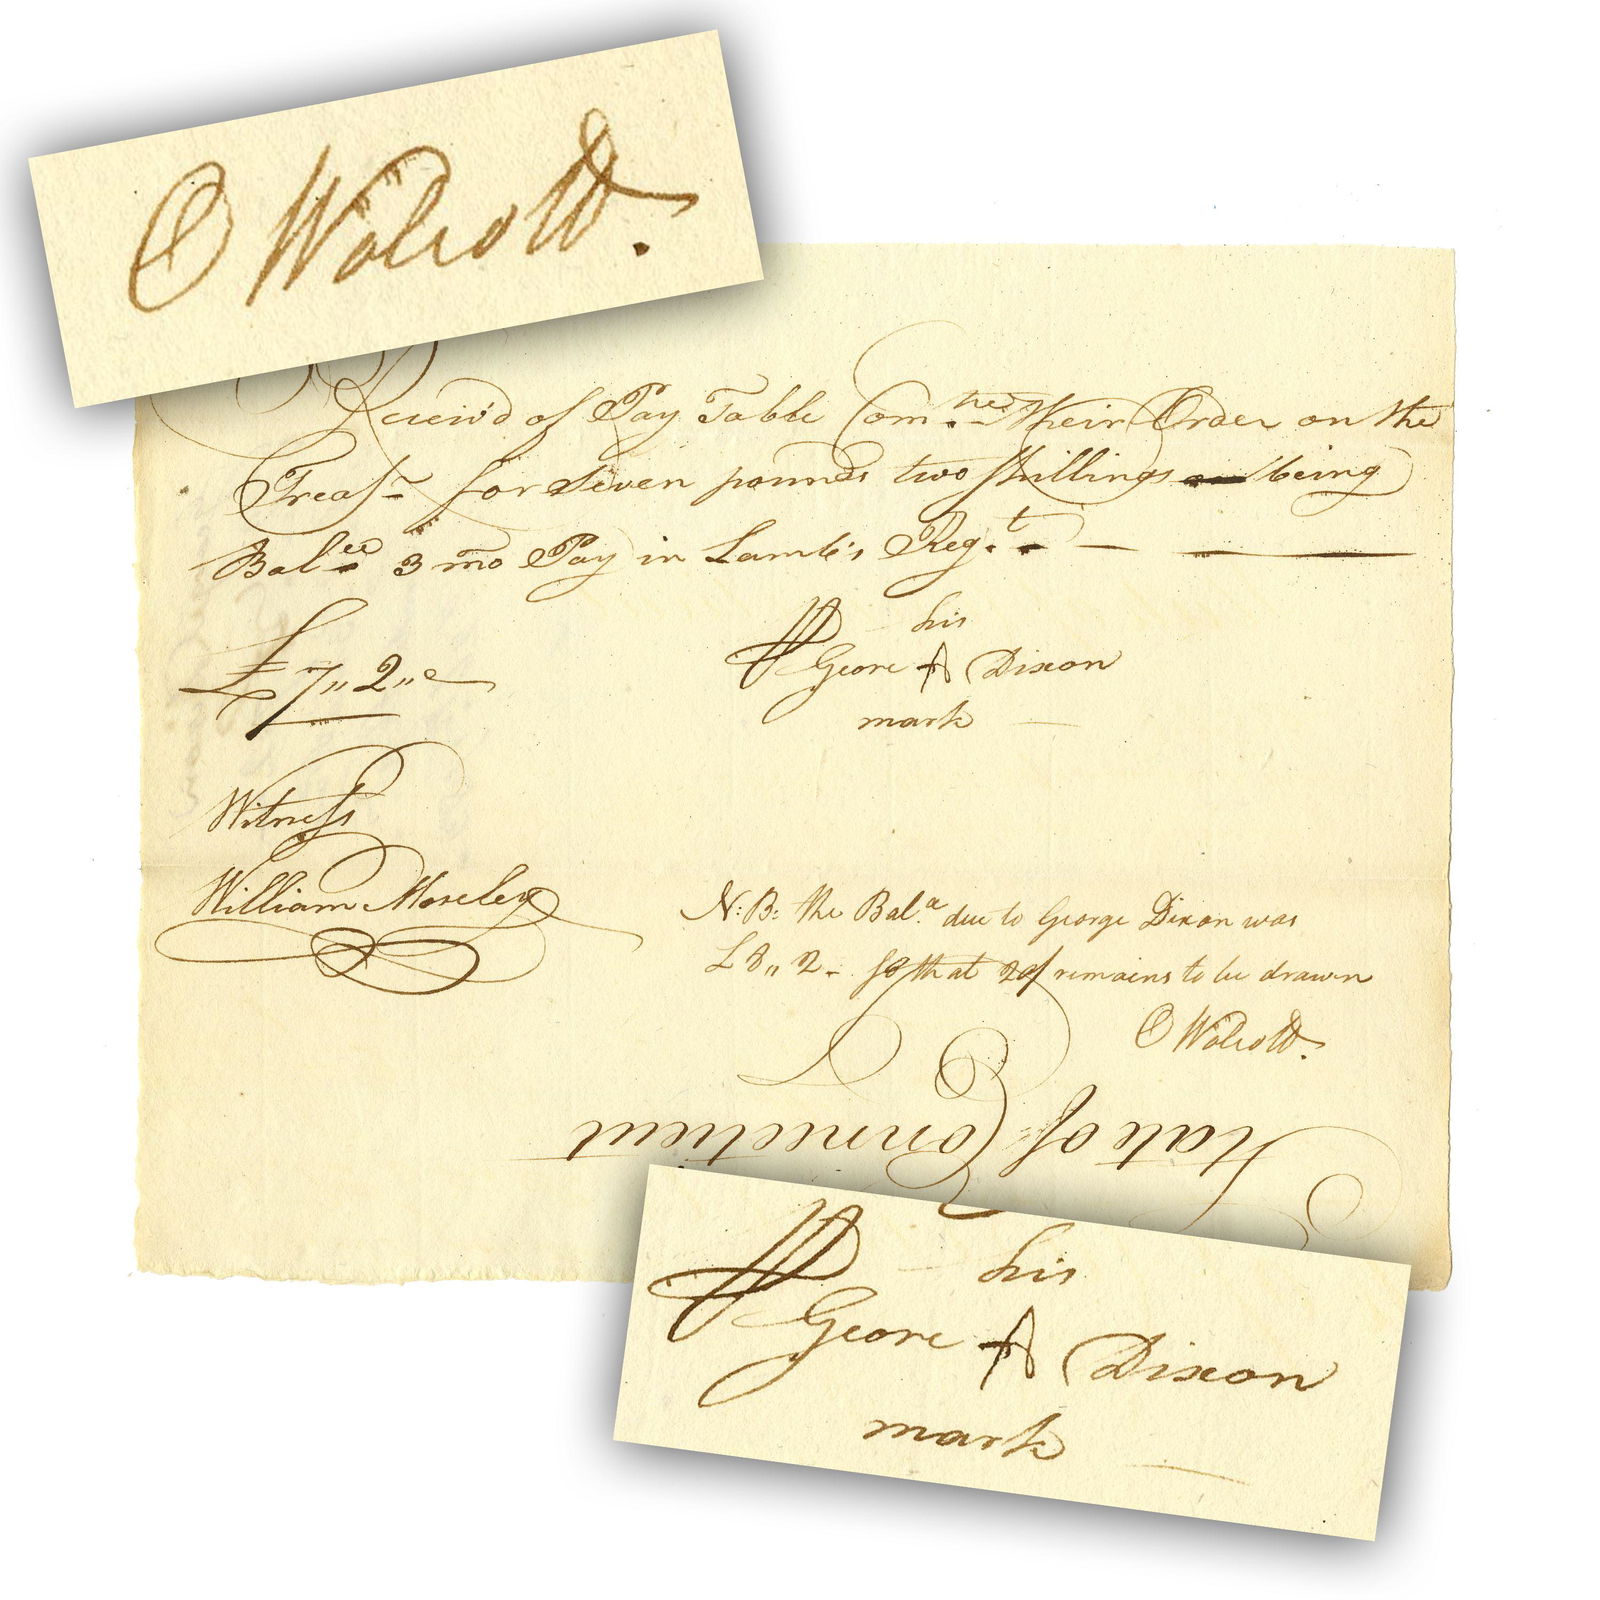 O Wolcott.
Receiv'd of Pay Table Com.tee their Order on the
Treasr for seven pounds two shillings being
Balce 3 mo Pay in Lamb's Reg.t
£7,, 2,,
his
Geore A Dixon
mark
Witness
William Moseley
N: B: the Bal.a due to George Dixon was
£8,, 2. so that 20/ remains to be drawn
O Wolcott.
State of Connecticut
his
Geore A Dixon
mark